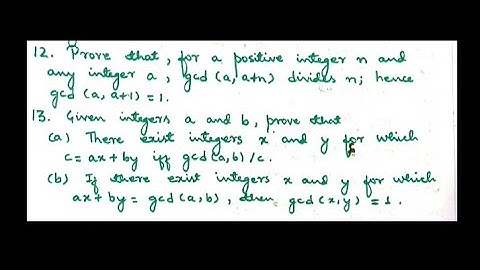 12. Prove that, for a positive integer n and
any integer a, gcd (a, a+n) divides n; hence
gcd (a, a+1) = 1.
13. Given integers a and b, prove that
(a) There exist integers x and y for which
c = ax + by iff gcd (a, b) / c.
(b) If there exist integers x and y for which
ax + by = gcd (a, b), then gcd (x, y) = 1.